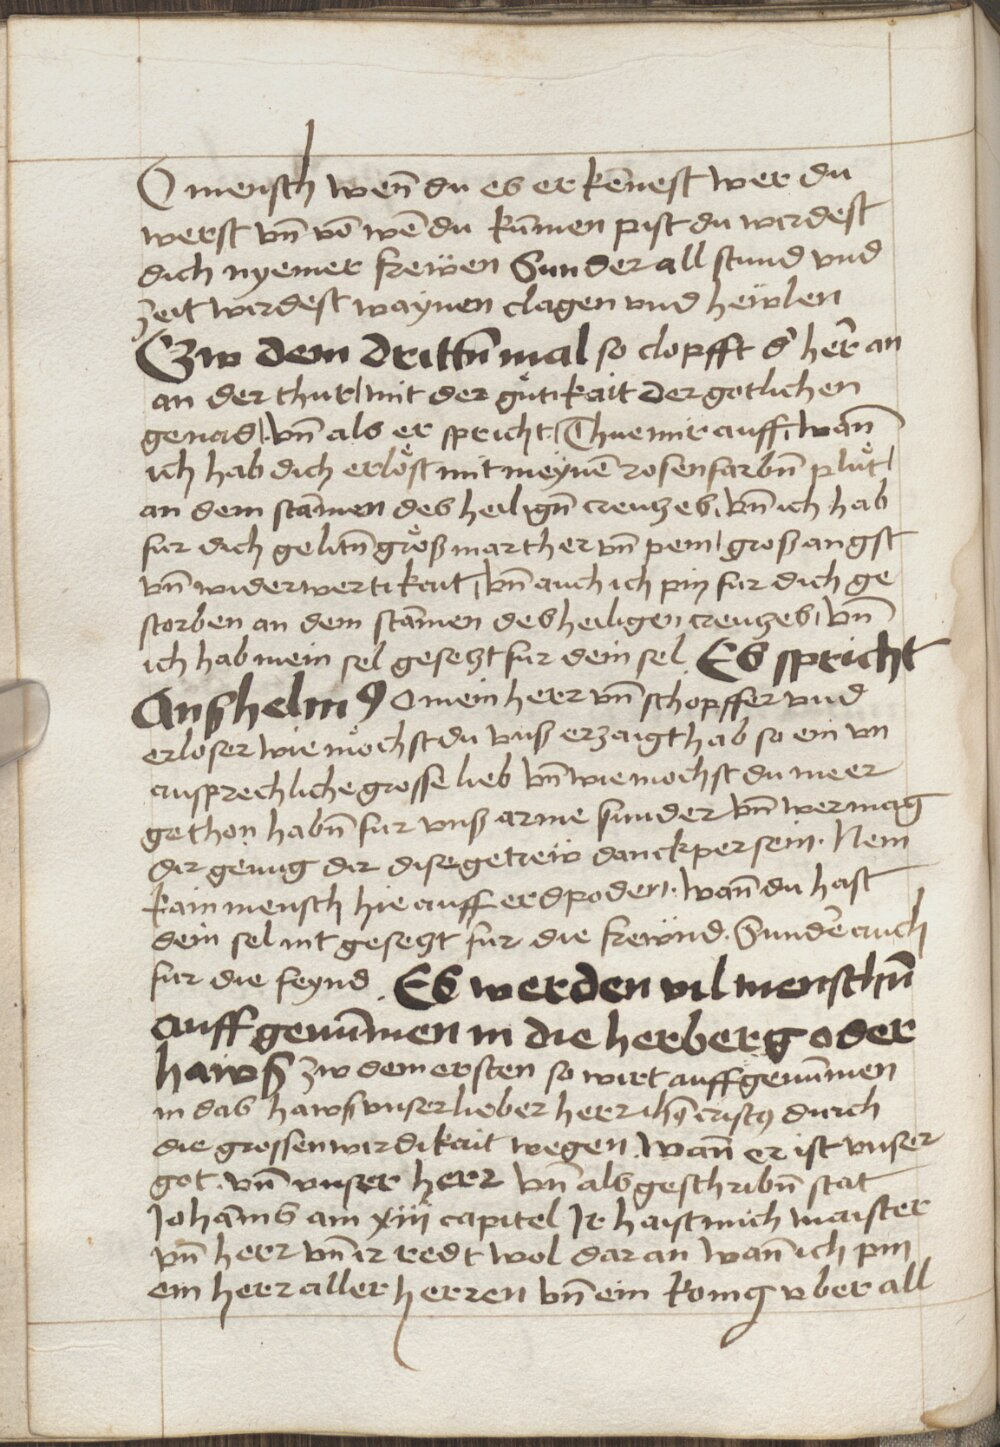 O mensch wen̄ du es erkēnest wer du
werst vn̄ vō wē du kūmen pist du wirdest
dich nyemer frewen Sunder all stund vnd
zeit wirdest waynen clagen vnd hewlen
Czw dem drittn̄ mal so clopfft d' her̄ an
an der thur mit der gutikait der gotlichen
genad. vn̄ als er spricht. Thue mir auff, wan̄
ich hab dich erlöst mit meynē rosenfarbn̄ plut
an dem stām̄en des heilign̄ creutzes, vn̄ ich hab
fur dich gelitn̄ groß marther vn̄ pein groß angst
vn̄ widerwertikait, vn̄ auch ich pin fur dich ge
storben an dem stāmen des heiligen creutzes, vn̄
ich hab mein sel gesetzt fur dein sel. Es spricht
Anßhelmꝰ O mein herr vn̄ schopffer vnd
erloser wie möchst du vnß erzaigt hab so ein vn
außprechliche grosse lieb vn̄ wie mochst du meer
gethon habn̄ fur vnß arme sunder vn̄ wer mag
dir genug dir dise getrew danckper sein. Nem
kain mensch hie auff erdpoden. wan̄ du hast
dein sel nit gesetzt fur die frewnd. Sundē auch
fur die feynd. Es werden vil menschn̄
auffgenūmen in die herberg oder
hawß zw dem ersten so wirt auffgenūmen
in das hawß vnser lieber herr ihūs cristꝰ durch
die grossen wirdikait wegen. wan̄ er ist vnser
got. vn̄ vnser herr vn̄ als geschribn̄ stat
Johānis am xiij capitel Ir haist mich maister
vn̄ herr vn̄ ir redt wol daran wan̄ ich pin
ein herr aller herren vn̄ ein konig vber all